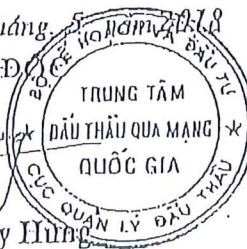 háng 5 2018
BỘ KẾ HOẠCH VÀ ĐẦU TƯ
TRUNG TÂM
ĐẤU THẦU QUA MẠNG
QUỐC GIA
CỤC QUẢN LÝ ĐẤU THẦU
y Hùng